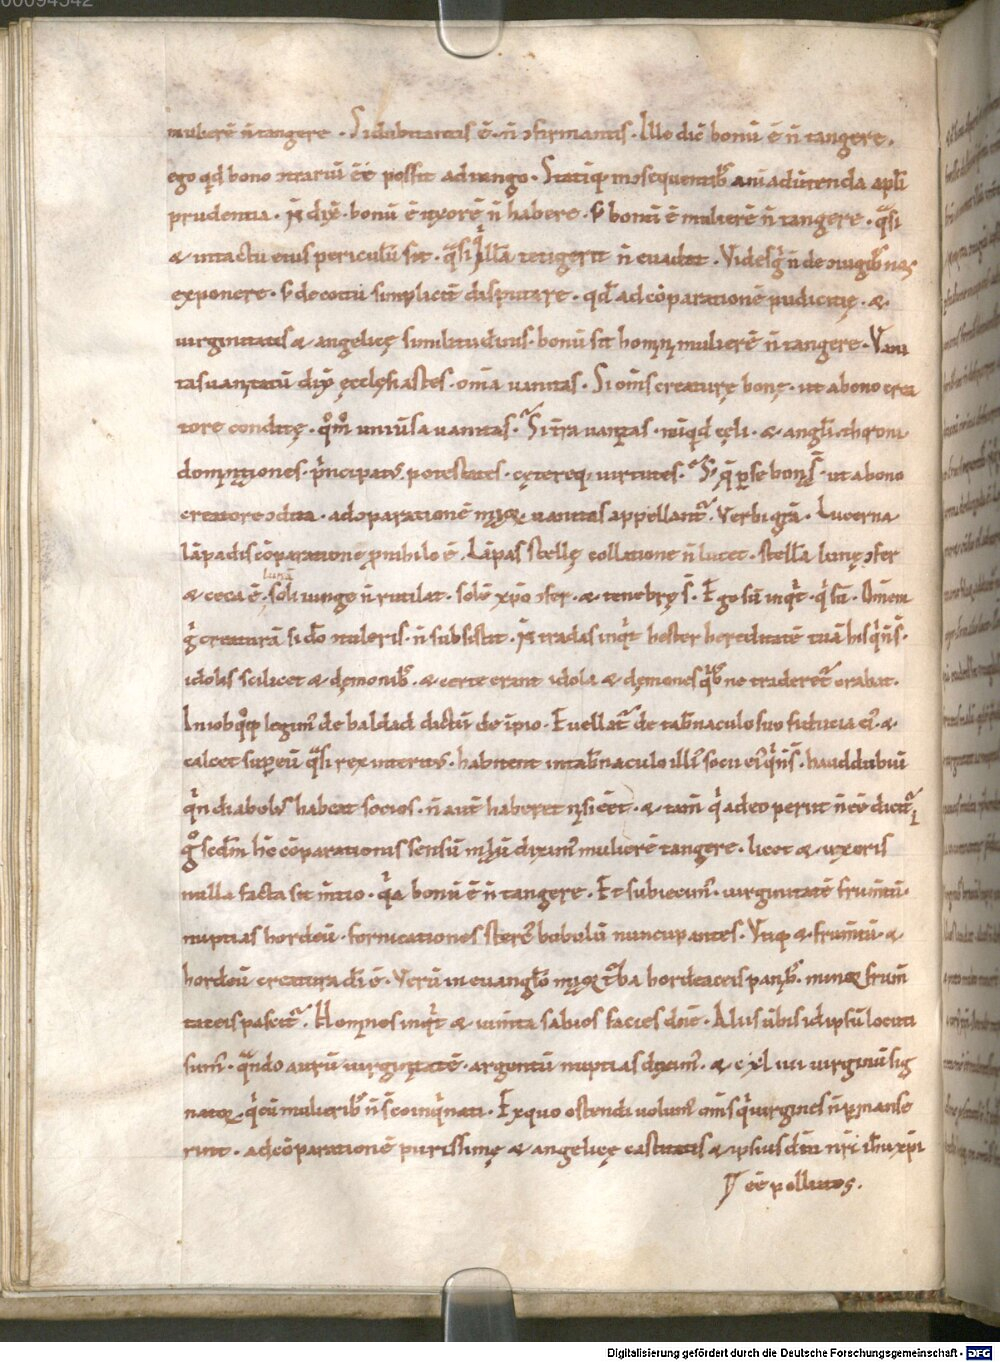 00094542
mulierē n̄ tangere . Si dubitantis ē . n̄ ɔfirmantis . Ille dic̄ bonū ē n̄ tangere .
ego qd bono ɔtrariū eē possit adiungo . Statiq; in ɔsequentib; aniaduertenda apl̄i
prudentia . N̄ dix̄ . bonū ē uxorē n̄ habere . s; bonū ē mulierē n̄ tangere . q̄si
& in tactu eius periculū sit . q̄si q̇ illā tetigerit n̄ euadet . Vides g̊ n̄ de ɔiugib; nos
exponere . s; de coitu simplicit̄ disputare . qd̄ ad cōparationē pudicitię . &
uirginitatis & angelicę similitudinis . bonū sit homini mulierē n̄ tangere . Vani
tas uanitatū dix̄ ęcclesiastes . om̄ia uanitas . Si om̄s creaturę bonę . ut a bono crea
tore conditę . q̊m̊ uniūsa uanitas . Si t̄ra uanitas . nūqd cęli . & angl̄i . throni .
dominationes . p̄ncipatus . potestates . cęteręq; uirtutes . S; q̄ p̱ se bona s̄ . ut a bono
creatore ɔdita . ad cōparationē meliorꝝ . uanitas appellant̄ . Verbi gr̄a . Lucerna
lāpadis cōparatione ꝓ nihilo ē . Lāpas stellę collatione n̄ lucet . stellā lunę ɔfer
& ceca ē . lunā soli iunge n̄ rutilat . solē xp̄o ɔfer . & tenebrę s̄ . Ego sū inq̇t . q̇ sū . Om̄em
g̊ creaturā si d̄o ɔtuleris . n̄ subsistit . N̄ tradas inq̇t hester hereditatē tuā his q̇ n̄ s̄ .
idolis scilicet & dęmonib; . & certe erant idola & dęmones qb; ne traderet̄ orabat .
In iob q̊q; legim; de baldad dictū de īpio . Euellat̄ de tab̄naculo suo fiducia ei; . &
calcet sup̱ eū q̄si rex interitus . habitent in tab̄naculo illi; socii ei; q̇ n̄ s̄ . haud dubiū
q̇n diabolus habeat socios . n̄ aut̄ haberet nisi eēt . & tam̄ q̇a deo perit n̄ eē dicit̄ .
g̊ sc̄dm hc̄ cōparationis sensū malū dixim; mulierē tangere . licet & uxoris
nulla facta sit m̄tio . q̇a bonū ē n̄ tangere . Et subiecim; . uirginitatē frumtū .
nuptias hordeū . fornicationes sterc; bobulū nuncupantes . Vtiq; & frumtū . &
hordeū creatura dī ē . Verū in euanglo maior t̄ba hordeaceis panib; . minor frum
tateis pascit̄ . Homines inq̇t & iumta saluos facies dn̄e . Aliis ūbis id ipsū locuti
sum; . q̄ndo aurū uirginitatē . argentū nuptias dixim; . & cxliiii uirginū sig
natorꝝ . q̇ cū mulierib; n̄ s̄ coinq̇nati . Ex quo ostendi uolum; om̄s q̇ uirgines n̄ p̱manse
runt . ad cōparationē purissimę & angelicę castitatis & ipsius dn̄i nr̄i ih̄u xp̄i
eē pollutos .
Digitalisierung gefördert durch die Deutsche Forschungsgemeinschaft - DFG